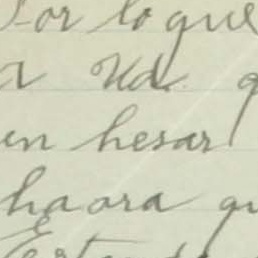 Por lo que
a Ud. q
en hesar
haora qu